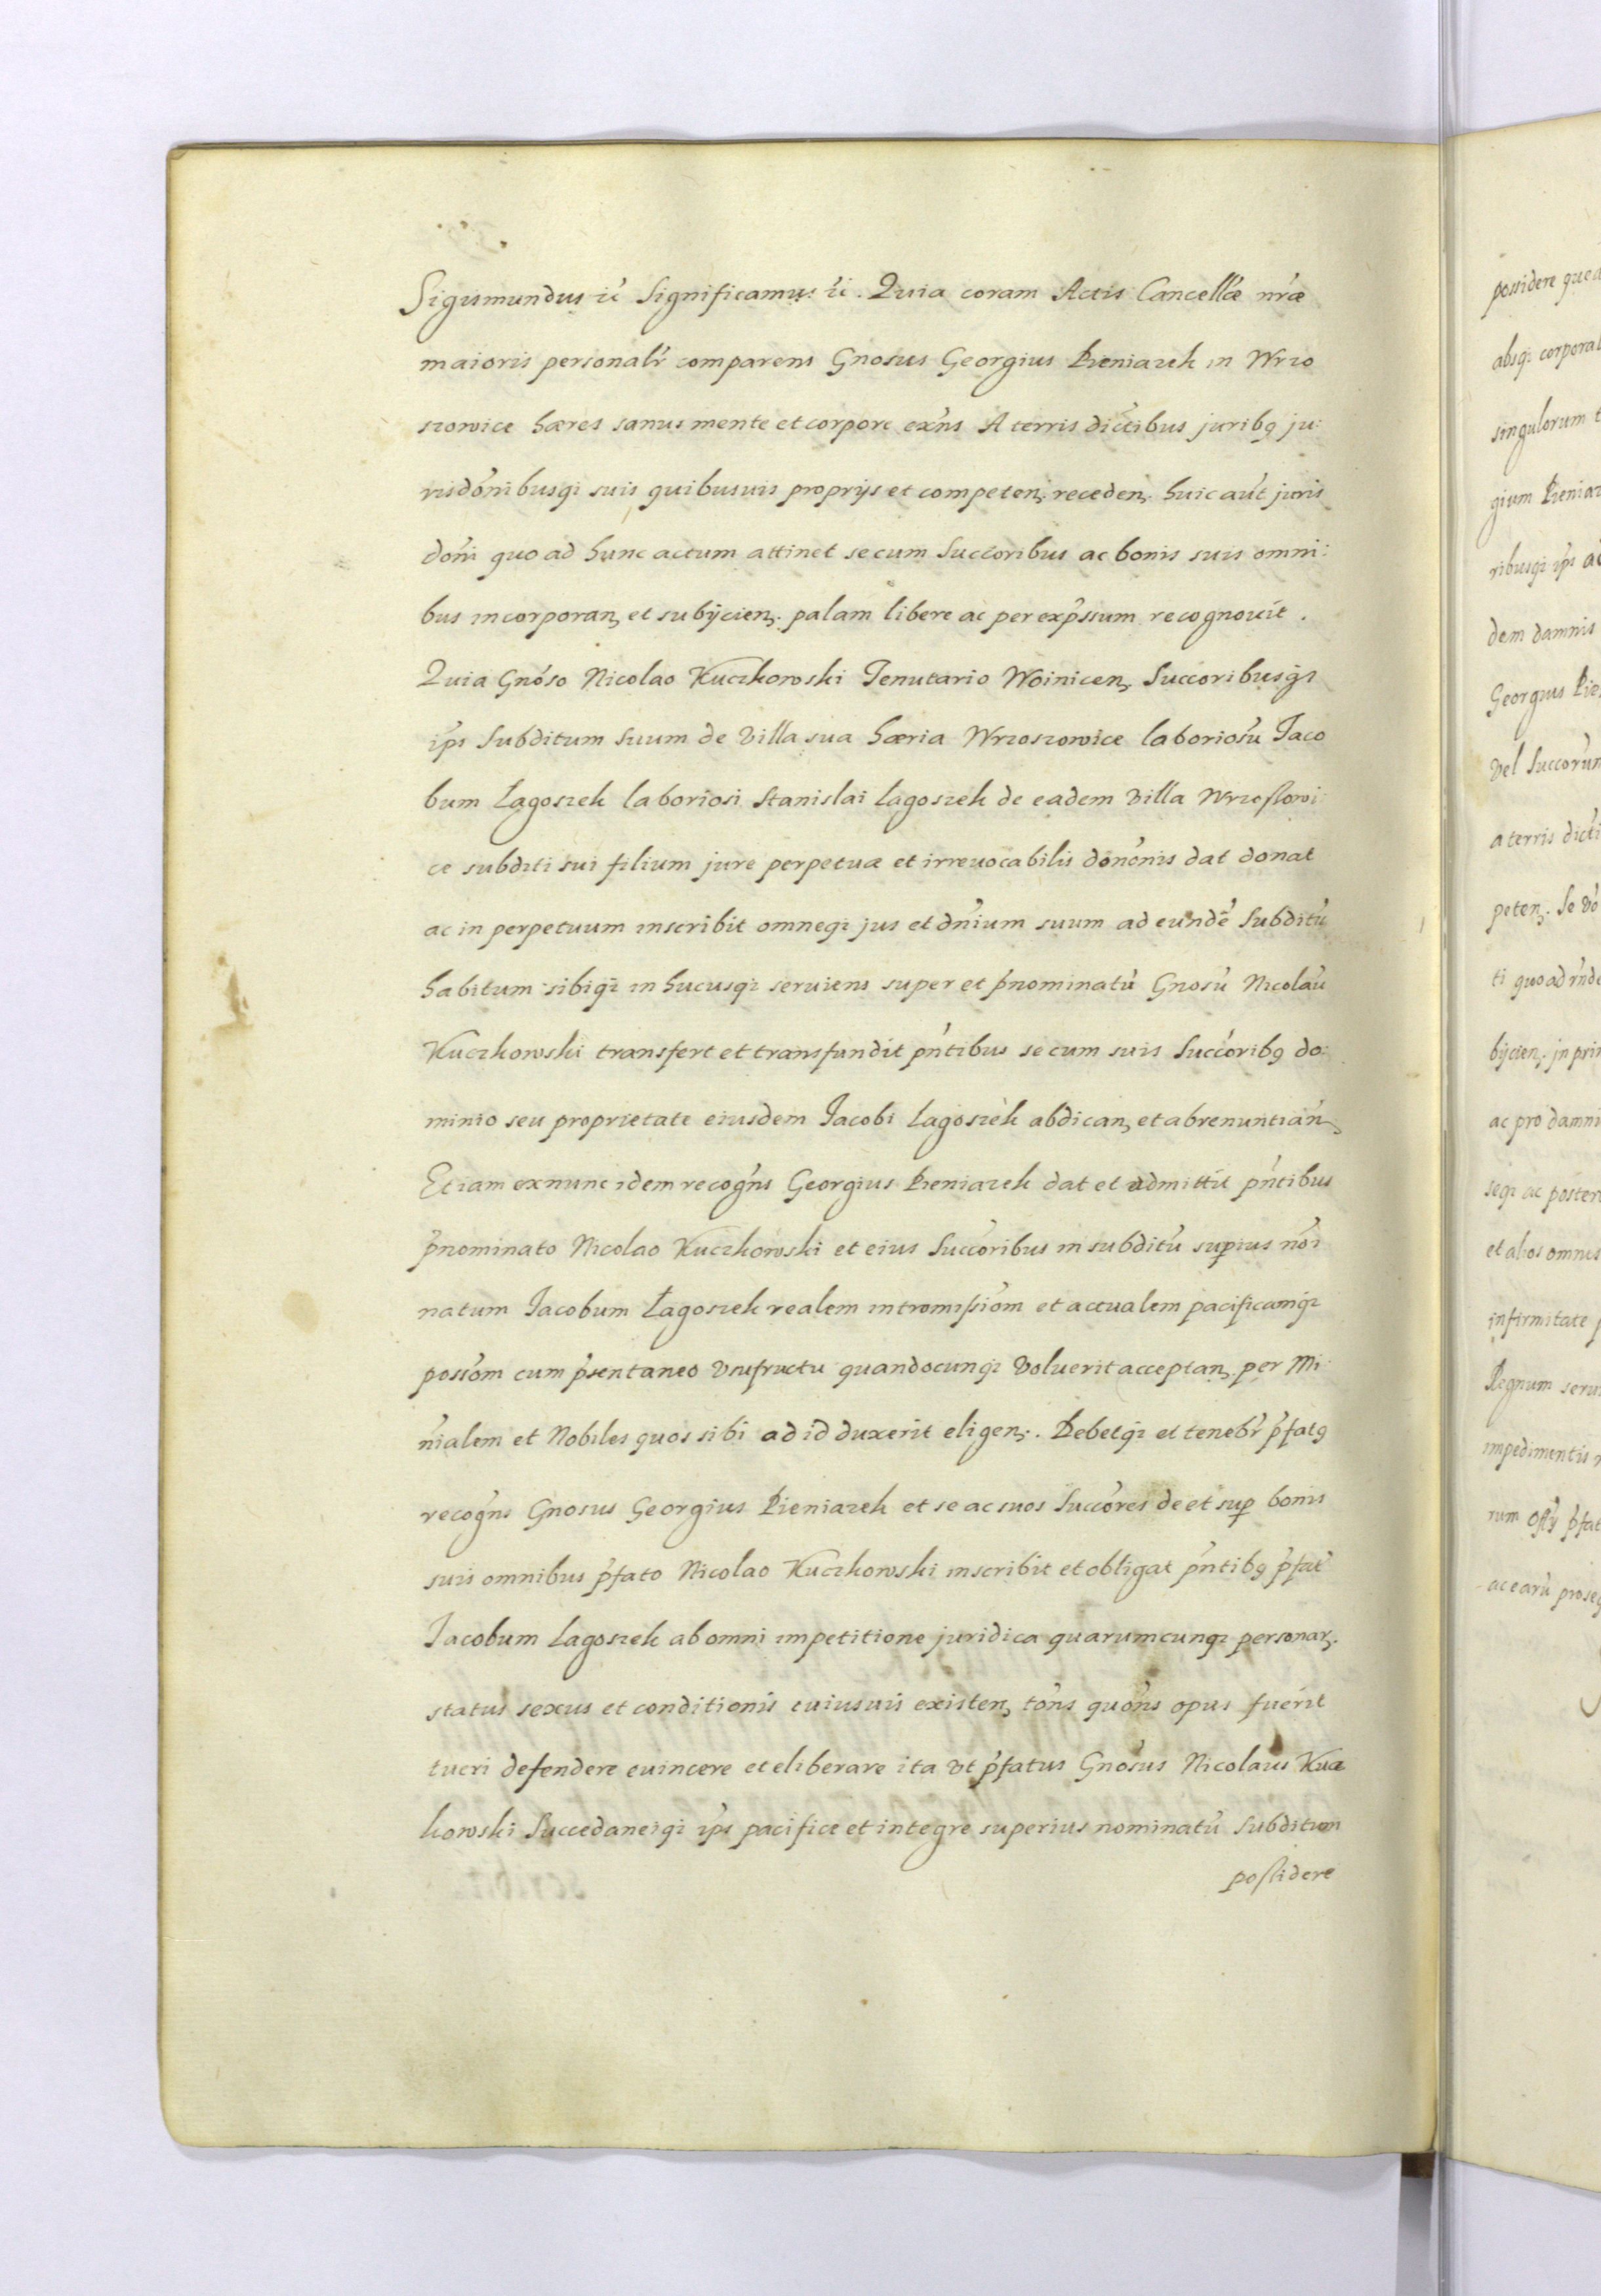 Sigismundus etć Significamus etć. Quia coram Actis Cancellæ nræ
maioris personalr comparens Gnosus Georgius Pieniazek in Wrzo
szowice hæres sanus mente et corpore exns A terris dictibus juribq ju:
risdonibusqz suis quibusuis proprijs et competen. receden. huic aut juris
doni quo ad hunc actum attinet se cum Succoribus ac bonis suis omni:
bus incorporan. et subijcien. palam libere ac per expssum recognouit.
Quia Gnoso Nicolao Kuczkowski Tenutario Woinicen. Succoribusqz
ips Subditum Suum de Villa sua hæria Wrzoszowice laboriosu Jaco
bum Łagoszek laboriosi Stanislai Lagoszek de eadem Villa Wrzossowi:
ce subditi sui filium jure perpetuæ et irreuocabilis dononis dat donat
ac in perpetuum inscribit omneqz jus et dnium suum ad eundē Subditū
habitum sibiqz in hucusqz seruiens super et pnominatū Gnosū Nicolaū
Kuczkowski transfert et transfundit pntibus se cum suis Succoribq do:
minio seu proprietate eiusdem Jacobi Lagoszek abdican. et abrenuntian.
Etiam exnunc idem recogns Georgius Pieniazek dat et admittit pntibus
pnominato Nicolao Kuczkowski et eius Succoribus in subditū superius noi
natum Jacobum Łagoszek realem intromissiom et actualem pacificamqz
possom cum psentaneo Vsufructu quandocunqz Voluerit acceptan. per Mi:
nialem et Nobiles quos sibi ad id duxerit eligen. Debetqz et tenebr pfatq
recogns Gnosus Georgius Pieniazek et se ac suos Succores de et sup bonis
suis omnibus pfato Nicolao Kuczkowski inscribit et obligat pntibq pfat
Jacobum Lagoszek ab omni impetitione juridica quarumcunqz personar.
status sexus et conditionis cuiusuis existen. tons quons opus fuerit
tueri defendere euincere et eliberare ita Vt pfatus Gnosus Nicolaus Kucz
kowski Succedaneiqz ips pacifice et integre superius nominatū Subditum
possidere